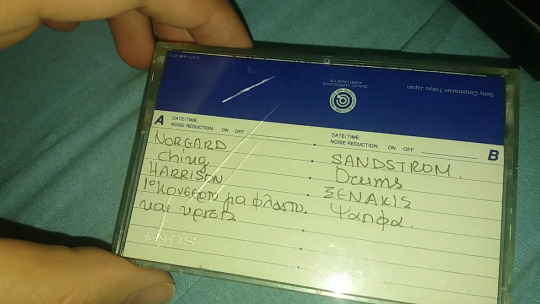 Sony Corporation Tokyo Japan
A DATE/TIME:
NOISE REDUCTION: ON OFF
NORGARD
Ching
HARRISON
1ο κονσερτο για φλαουτο
και κρουστα
SONY
DATE/TIME:
NOISE REDUCTION: ON OFF
B
SANDSTROM.
Drums
ΞΕΝΑΚΙΣ
Ψαπφα.